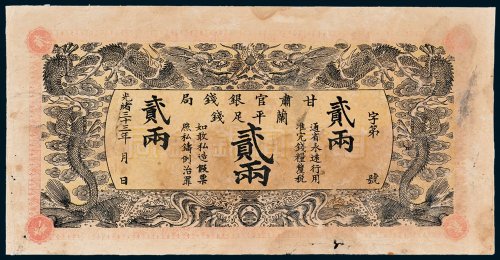 甘肅官銀錢局
蘭平足錢
字第 號
貳兩
通省永遠行用
准完錢糧釐稅
貳兩
如敢私造假票
照私鑄例治罪
貳兩
光緒三十三年 月 日